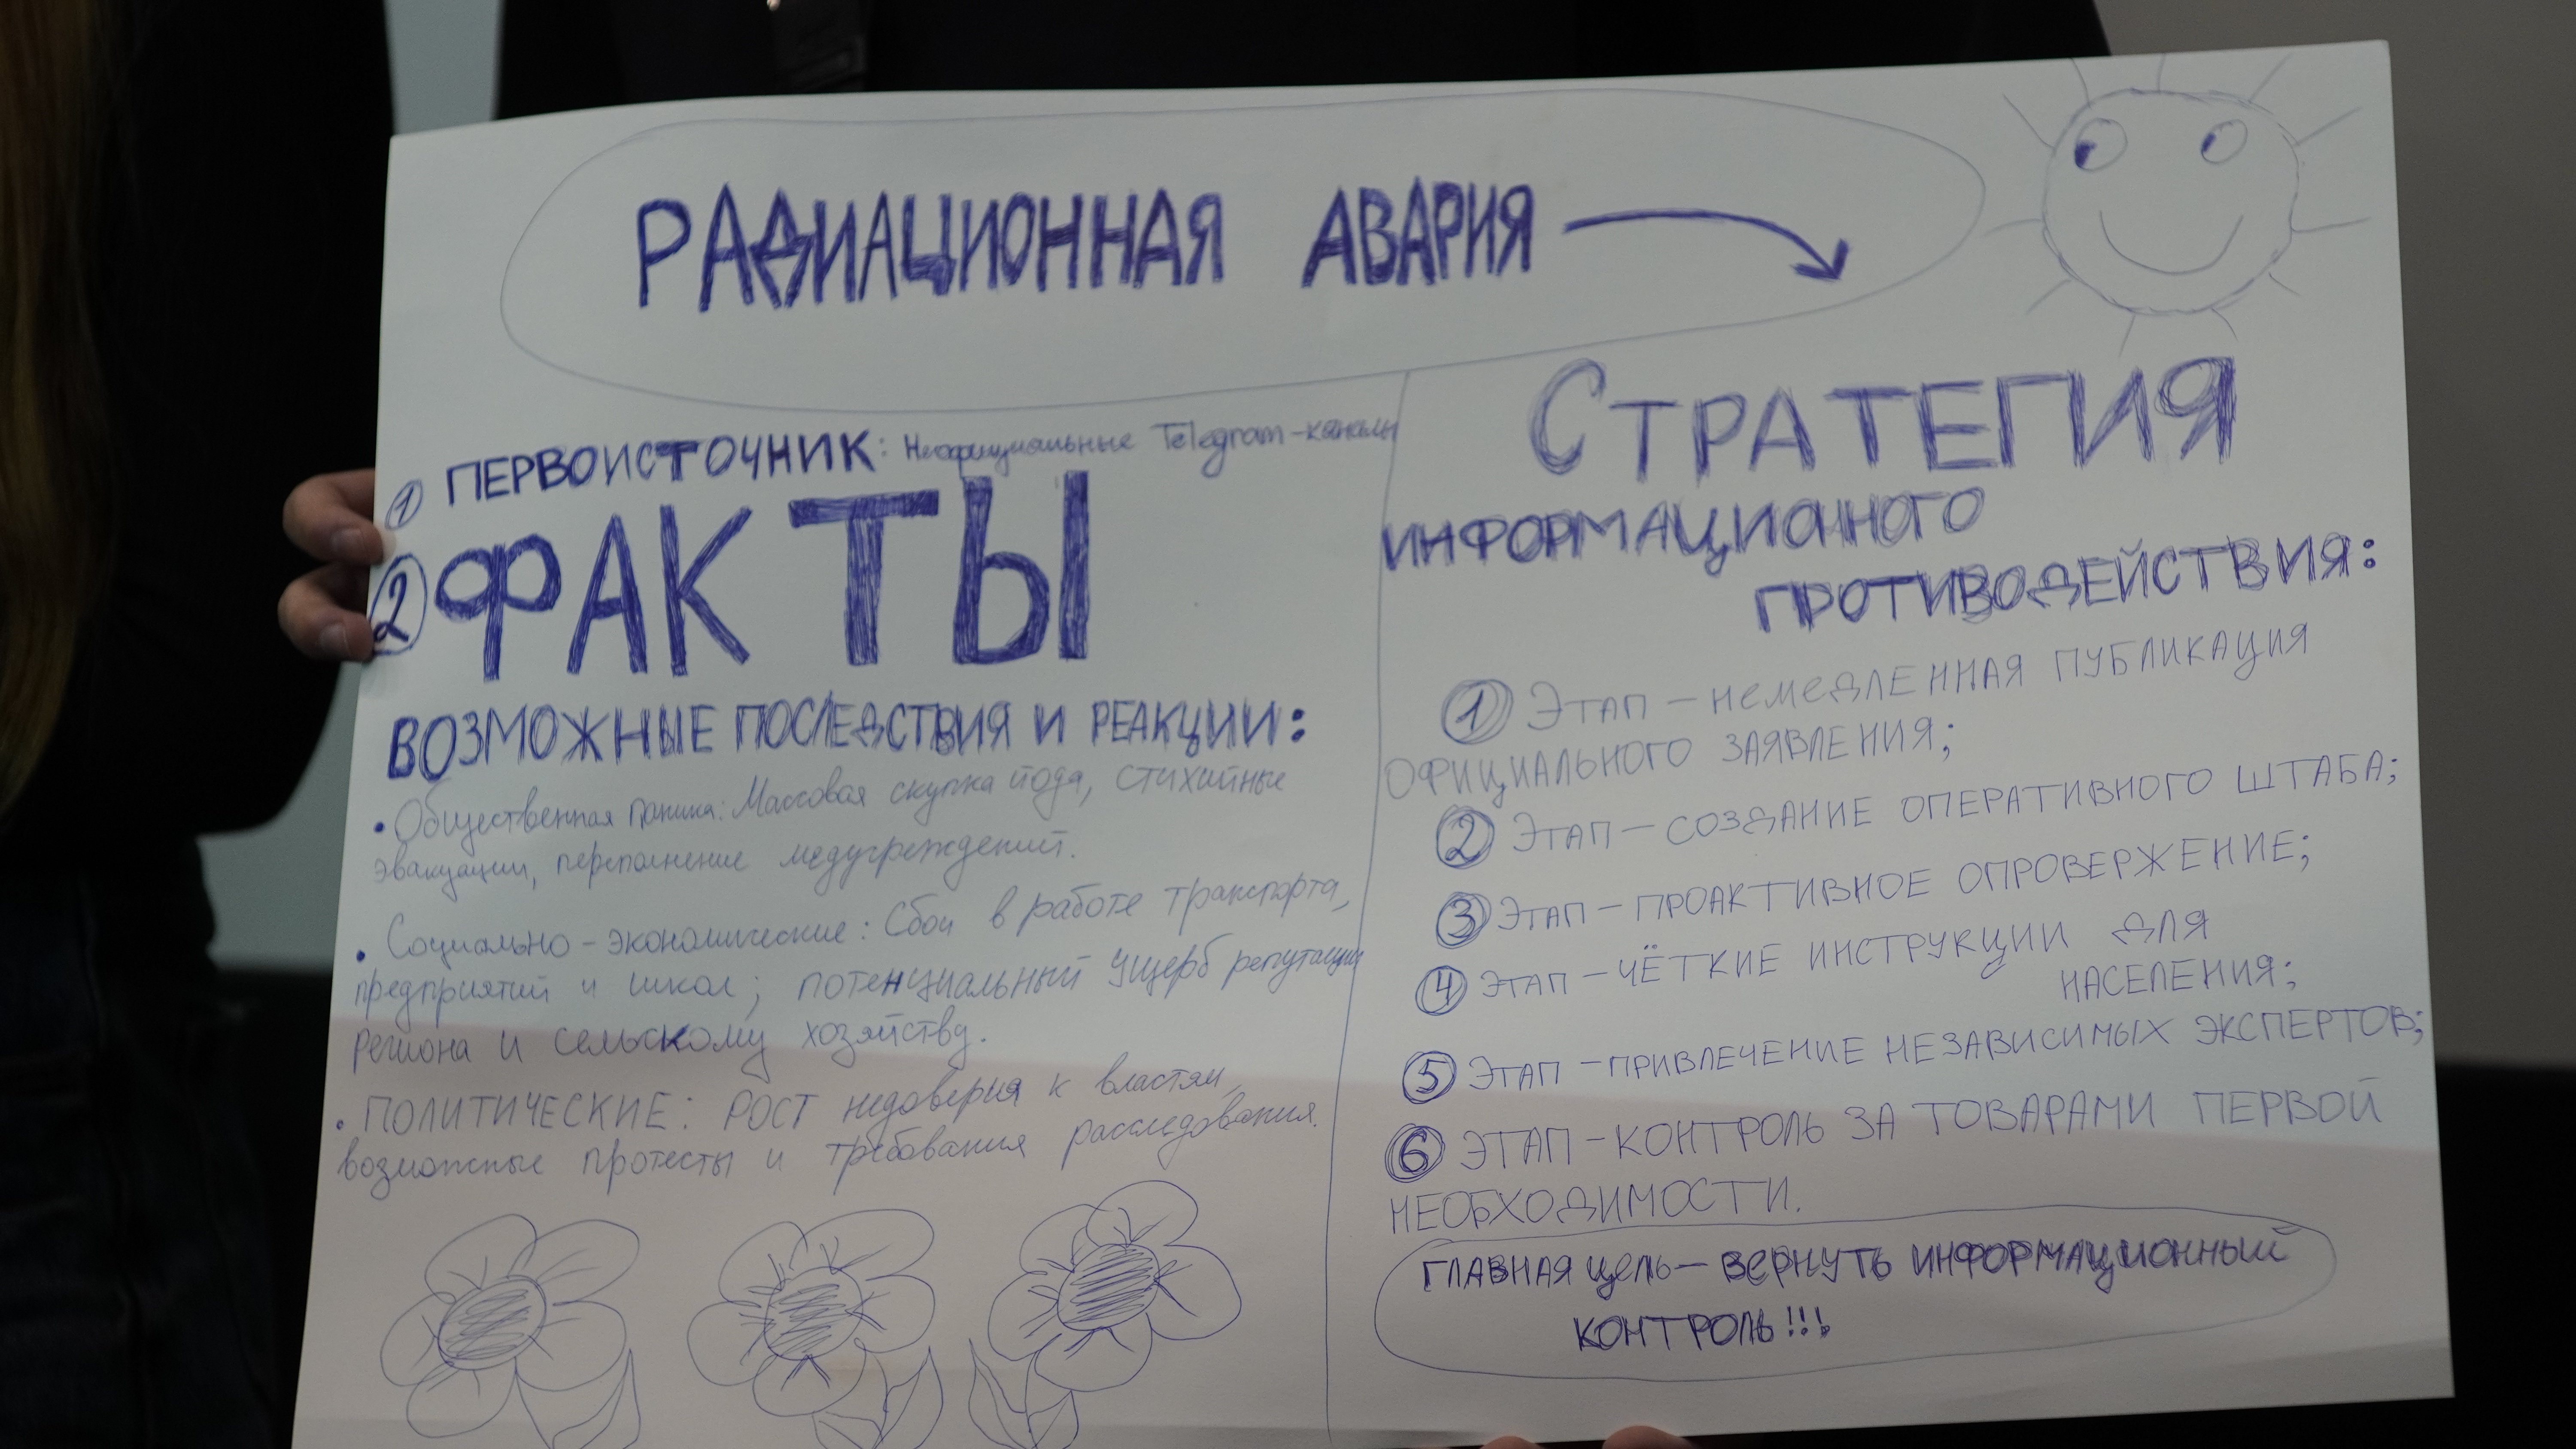 РАДИАЦИОННАЯ АВАРИЯ
1 ПЕРВОИСТОЧНИК: Неофициальные Telegram-каналы
2 ФАКТЫ
ВОЗМОЖНЫЕ ПОСЛЕДСТВИЯ И РЕАКЦИИ:
• Общественная паника: Массовая скупка йода, стихийные
эвакуации, переполнение медучреждений.
• Социально-экономические: Сбои в работе транспорта,
предприятий и школ; потенциальный ущерб репутации
региона и сельскому хозяйству.
• ПОЛИТИЧЕСКИЕ: РОСТ недоверия к властям,
возможные протесты и требования расследования.
СТРАТЕГИЯ
ИНФОРМАЦИОННОГО
ПРОТИВОДЕЙСТВИЯ:
1 ЭТАП – НЕМЕДЛЕННАЯ ПУБЛИКАЦИЯ
ОФИЦИАЛЬНОГО ЗАЯВЛЕНИЯ;
2 ЭТАП – СОЗДАНИЕ ОПЕРАТИВНОГО ШТАБА;
3 ЭТАП – ПРОАКТИВНОЕ ОПРОВЕРЖЕНИЕ;
4 ЭТАП – ЧЁТКИЕ ИНСТРУКЦИИ ДЛЯ
НАСЕЛЕНИЯ;
5 ЭТАП – ПРИВЛЕЧЕНИЕ НЕЗАВИСИМЫХ ЭКСПЕРТОВ;
6 ЭТАП – КОНТРОЛЬ ЗА ТОВАРАМИ ПЕРВОЙ
НЕОБХОДИМОСТИ.
ГЛАВНАЯ ЦЕЛЬ – ВЕРНУТЬ ИНФОРМАЦИОННЫЙ
КОНТРОЛЬ!!!